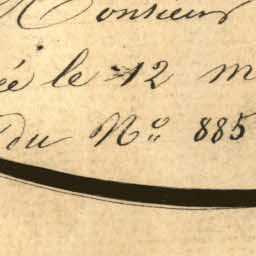 Monsieur
ée le 12 m
du Nº 885